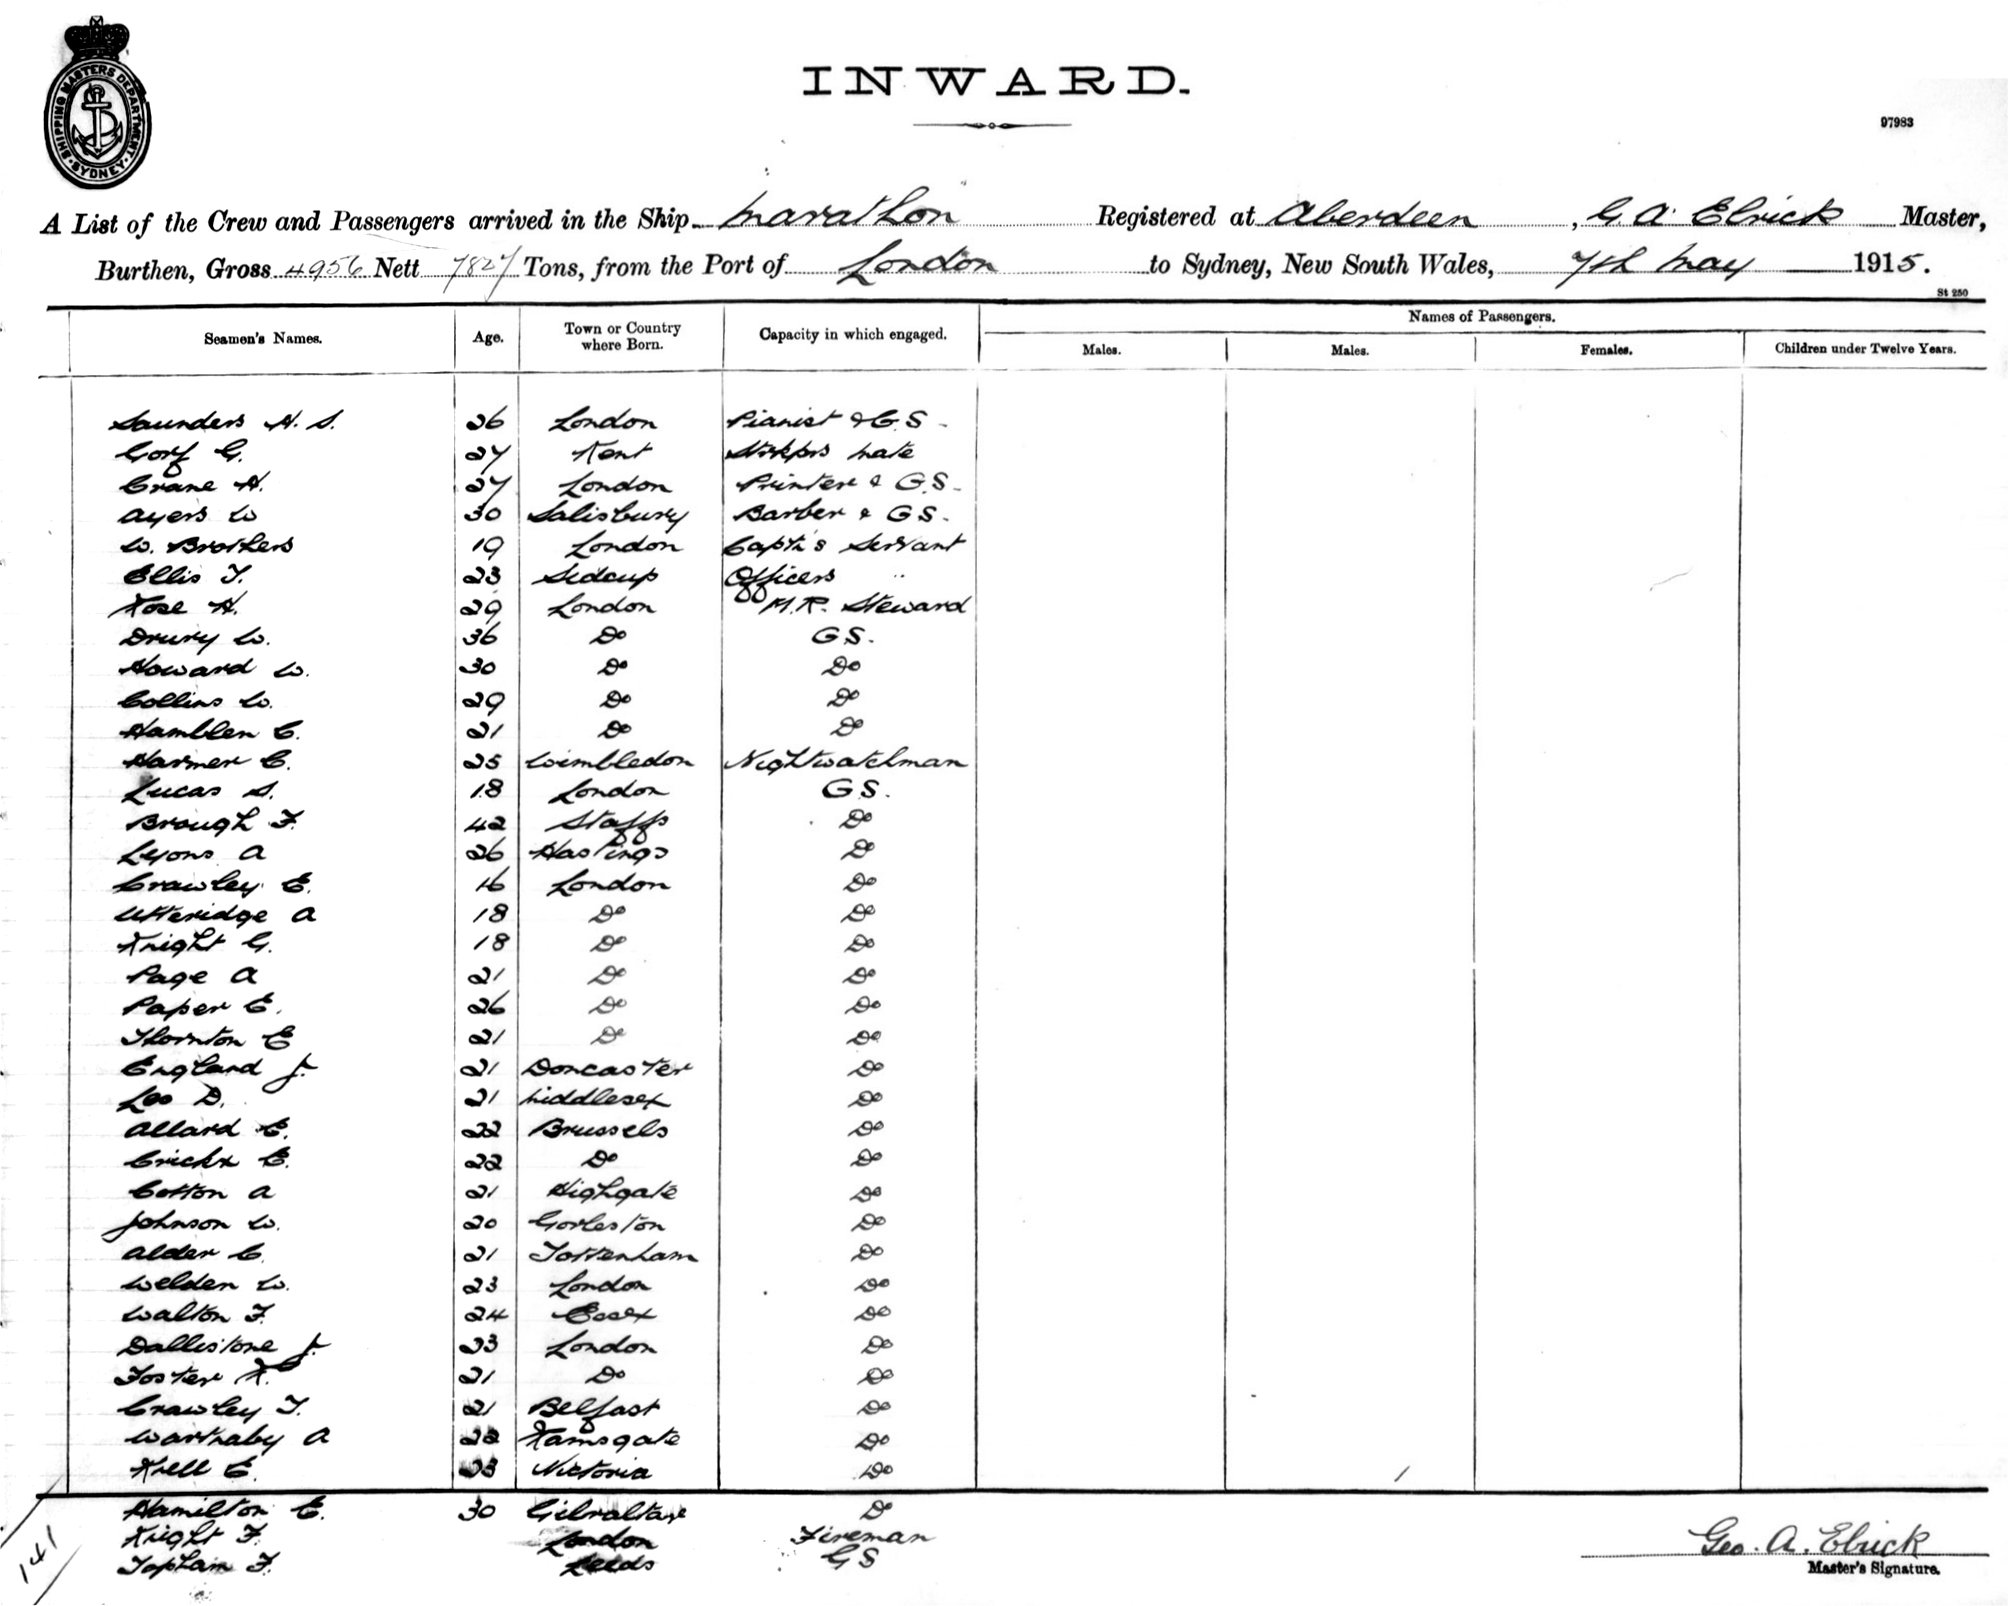 SHIPPING MASTERS DEPARTMENT · SYDNEY ·
INWARD.
97983
A List of the Crew and Passengers arrived in the Ship Marathon Registered at Aberdeen, G. A. Elrick Master,
Burthen, Gross 4956 Nett 7827 Tons, from the Port of London to Sydney, New South Wales, 7th May 1915.
St 250
Seamen's Names. Age. Town or Country where Born. Capacity in which engaged. Names of Passengers.
Males. Males. Females. Children under Twelve Years.
Saunders H. S. 26 London Pianist & G.S.
Gorf G. 27 Kent Strkprs Mate
Crane H. 27 London Printer & G.S.
Ayers W 30 Salisbury Barber & G.S.
W. Brothers 19 London Capt's Servant
Ellis T. 23 Sidcup Officers "
Rose H. 29 London M.R. Steward
Drury W. 36 Do G.S.
Howard W. 30 Do Do
Collins W. 29 Do Do
Hamblen C. 21 Do Do
Harmer C. 25 Wimbledon Nightwatchman
Lucas S. 18 London G.S.
Brough F. 42 Staffs Do
Lyons A 26 Hastings Do
Crawley E. 16 London Do
Utteridge A 18 Do Do
Knight G. 18 Do Do
Page A 21 Do Do
Paper E. 26 Do Do
Thornton E 21 Do Do
England J. 21 Doncaster Do
Lee D. 21 Middlesex Do
Allard E. 22 Brussels Do
Crickx E. 22 Do Do
Cotton A 21 Highgate Do
Johnson W. 20 Gorleston Do
Alder C. 21 Tottenham Do
Welden W. 23 London Do
Walton F. 24 Essex Do
Dallistone J. 23 London Do
Foster R. 21 Do Do
Crawley T. 21 Belfast Do
Warthaby A 22 Ramsgate Do
Krell E. 23 Victoria Do
Hamilton E. 30 Gibraltar Do
Knight F. London Fireman
Topham F. Leeds GS
141
Geo. A. Elrick
Master's Signature.